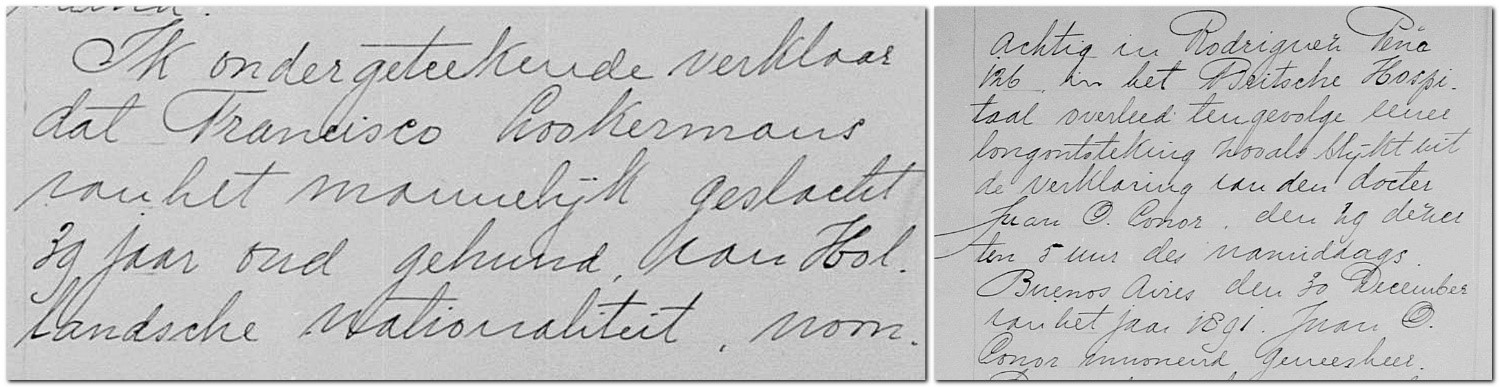 Ik ondergeteekende verklaar
dat Francisco Cookermans
van het mannelijk geslacht
39 jaar oud gehuwd, van Hol.
landsche nationaliteit, wom.
achtig in Rodriguez Pena
126 in het Britsche Hospi.
taal overleed tengevolge eener
longontsteking zooals blijkt uit
de verklaring van den docter
Juan O. Conor, den 29 dezer
ten 5 uur des namiddags.
Buenos Aires den 30 December
van het jaar 1891. Juan O.
Conor innonend geneesheer.